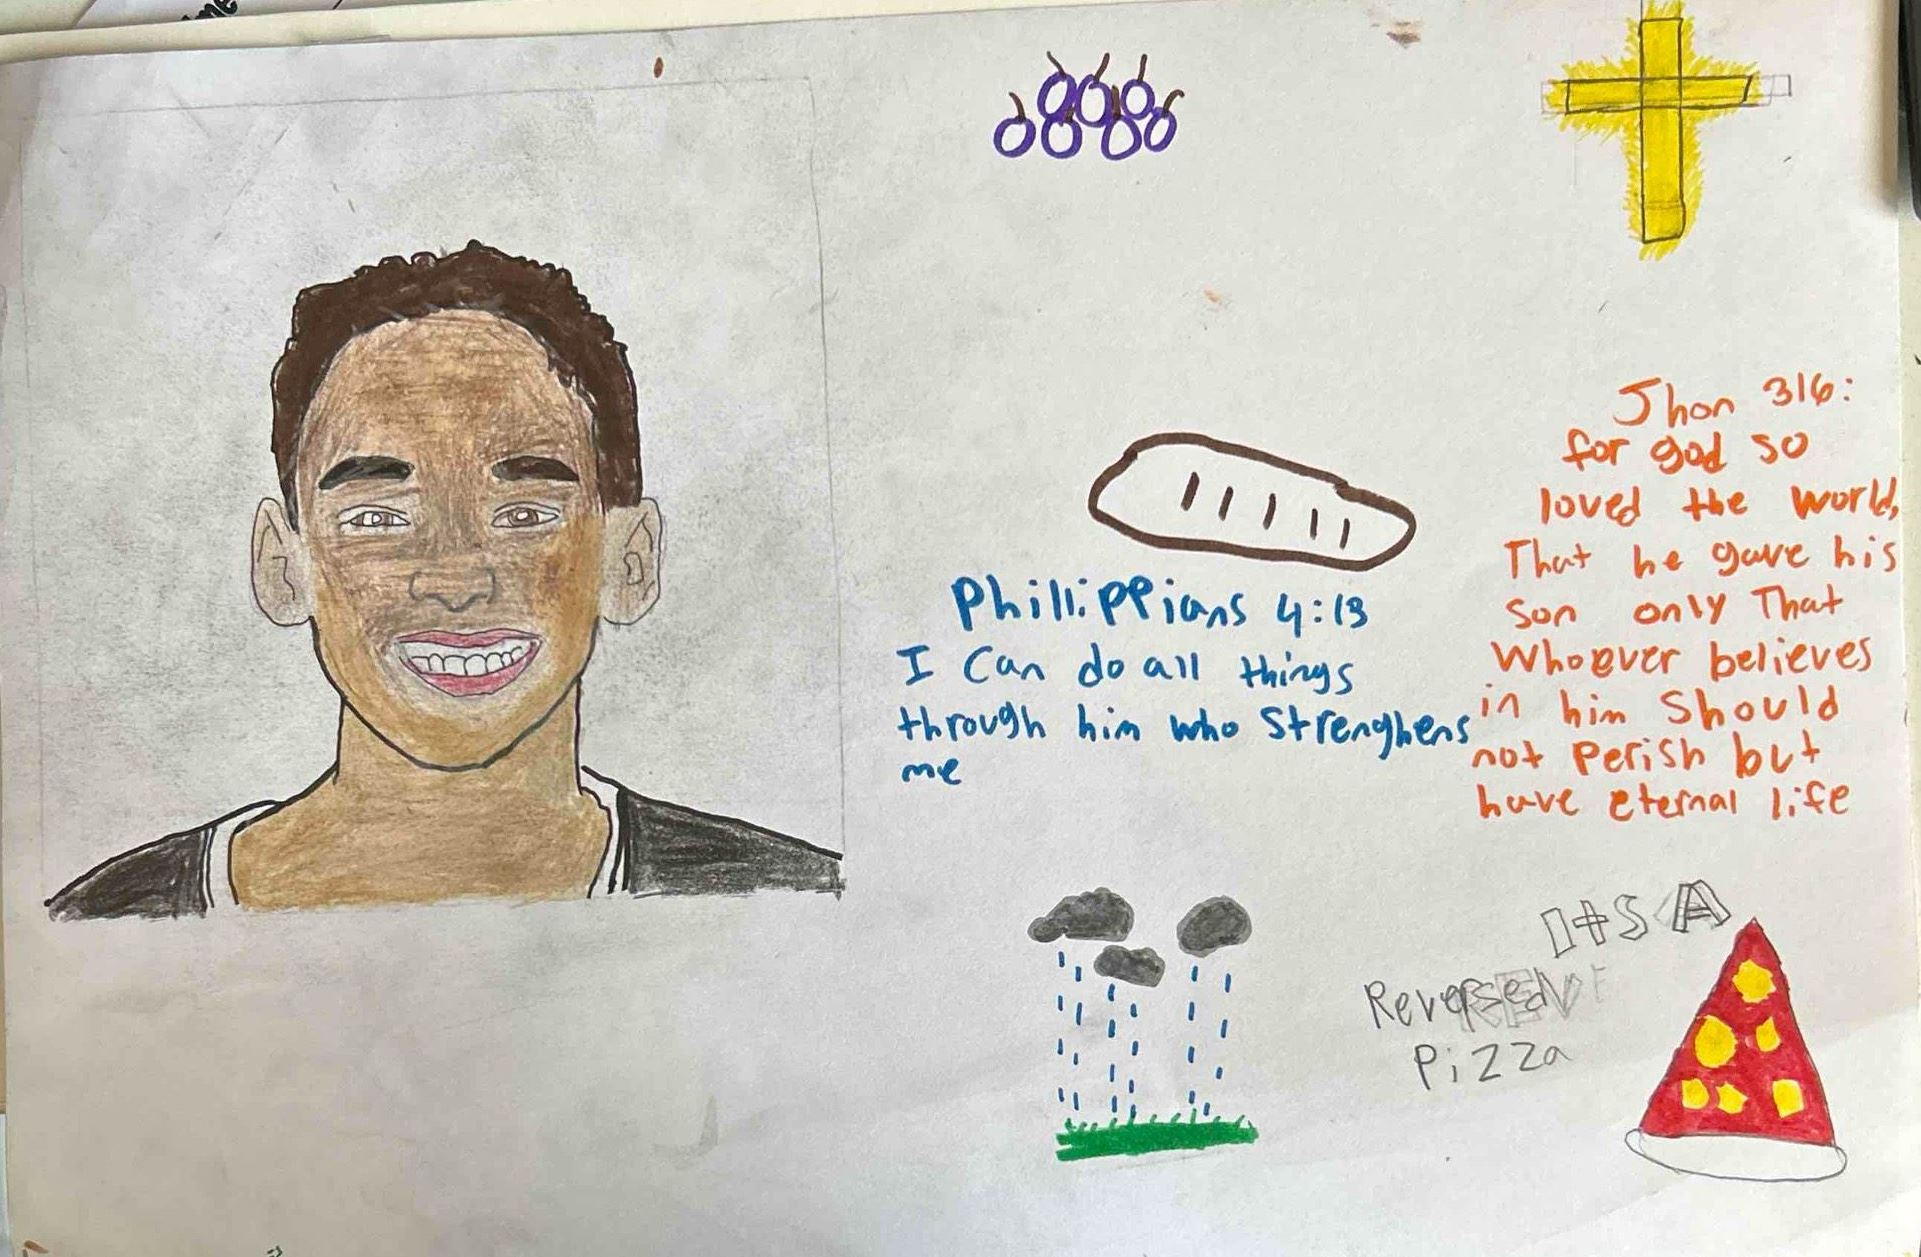 Phillippians 4:13
I Can do all things
through him who Strenghens
me
Jhon 316:
for god so
loved the world,
That he gave his
son only That
Whoever believes
in him Should
not Perish but
have eternal life
ItS A
Reversed
Pizza